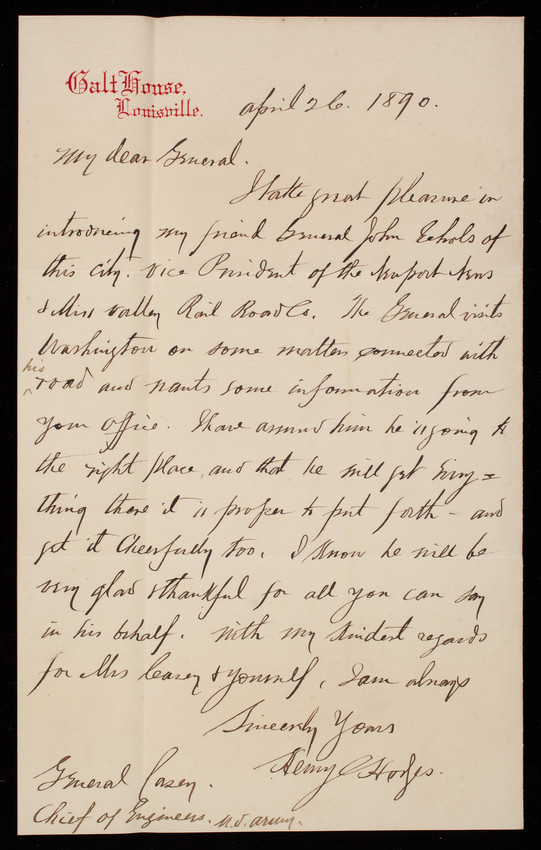 Galt House,
Louisville.
april 26. 1890.
My dear General.
I take great pleasure in
introducing my friend General John Echols of
this city. Vice President of the Newport News
& Miss Valley Rail Road Co. The General visits
Washington on some matters connected with
his
road and wants some information from
your office. I have assured him he is going to
the right place, and that he will get every=
thing there it is proper to put forth - and
get it cheerfully too. I know he will be
very glad & thankful for all you can say
in his behalf. With my kindest regards
for Mrs Casey & yourself, I am always
Sincerely Yours
Henry C Hodges.
General Casey.
Chief of Engineers. U.S. army.